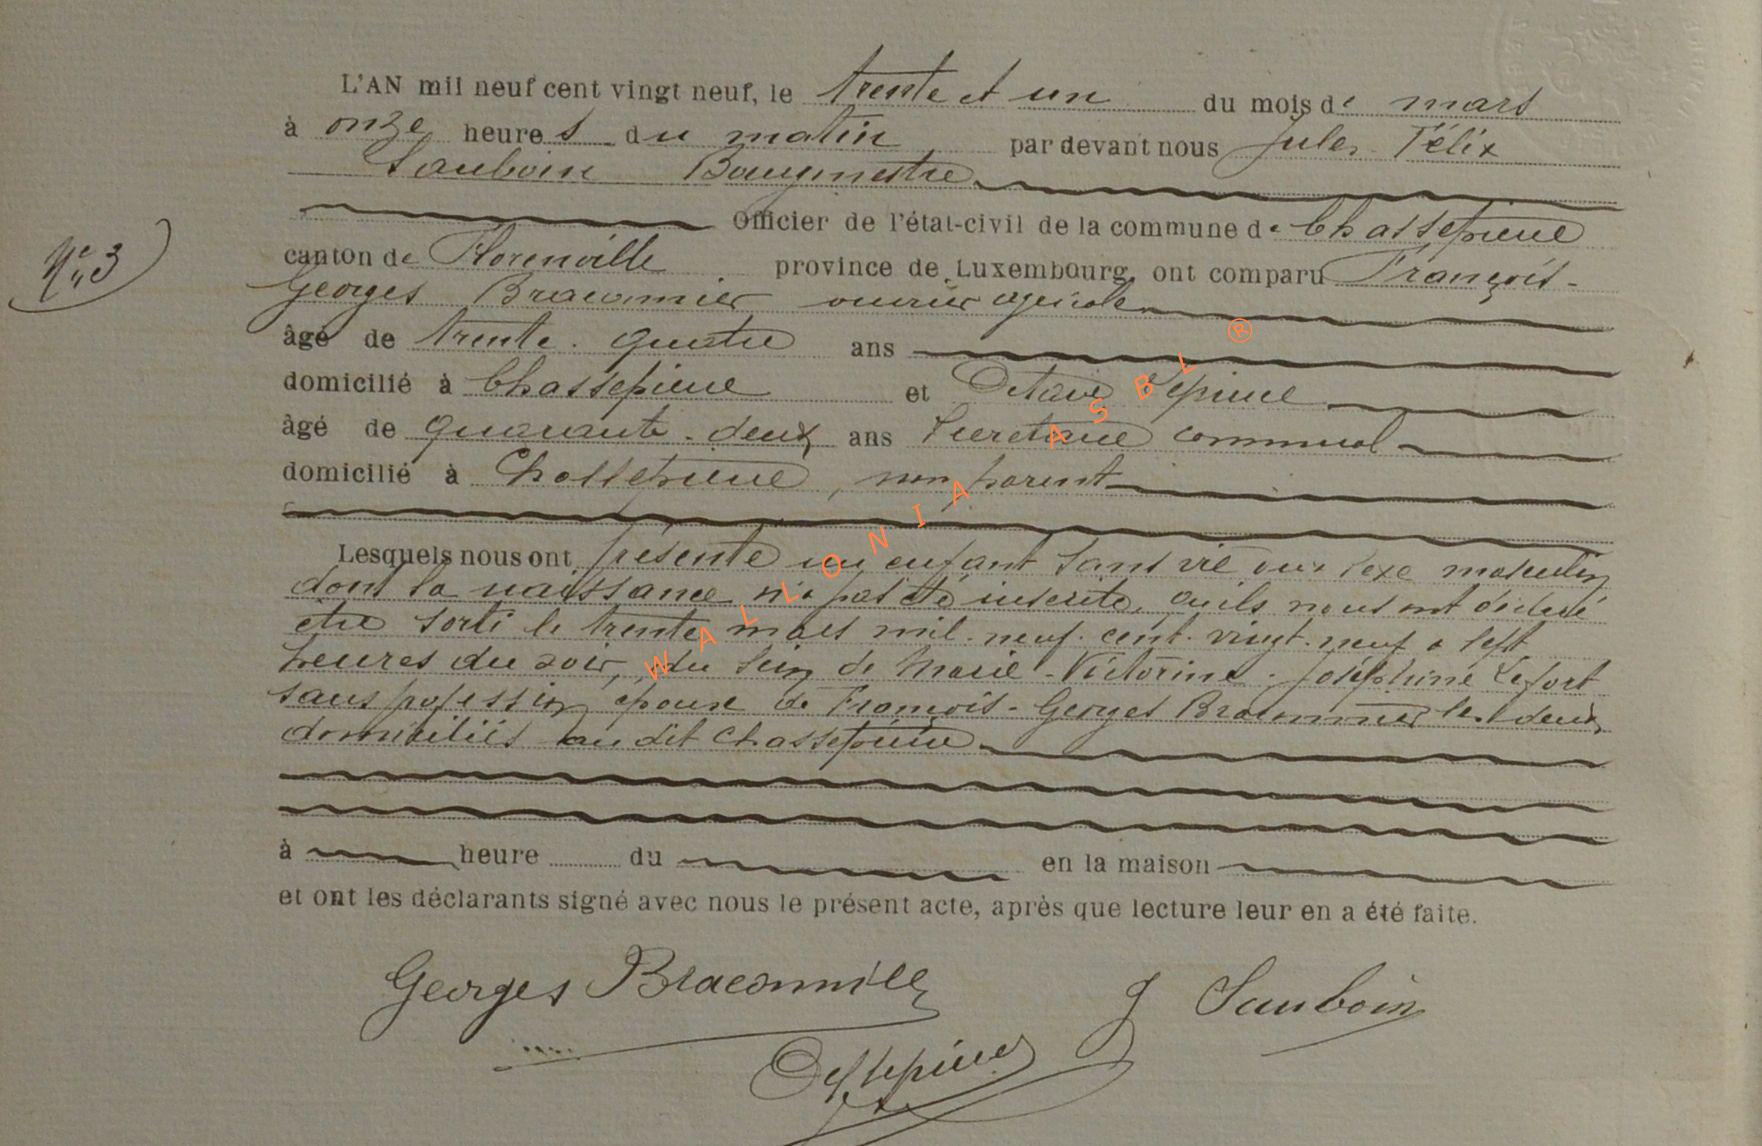 L'AN mil neuf cent vingt neuf, le trente et un du mois de mars
à onze heures du matin par devant nous Jules Félix
Sauboin Bourgmestre
Officier de l'état-civil de la commune de Chassepierre
N° 3
canton de Florenville province de Luxembourg, ont comparu François-
Georges Braconnier ouvrier agricole
âgé de trente-quatre ans
domicilié à Chassepierre et Octave Lepine
âgé de quarante-deux ans Secretaire communal
domicilié à Chassepierre, non parent
Lesquels nous ont présenté un enfant sans vie du sexe masculin
dont la naissance n'a pas été inscrite, qu'ils nous ont déclaré
etre sorti le trente mars mil-neuf-cent-vingt-neuf à sept
heures du soir, du sein de Marie-Victorine-Joséphine Lefort
sans profession, épouse de François-Georges Braconnier les deux
domiciliés au dit Chassepierre
à heure du en la maison
et ont les déclarants signé avec nous le présent acte, après que lecture leur en a été faite.
Georges Braconnier J Sauboin
Oct Lepine
WALLONIA ASBL ®